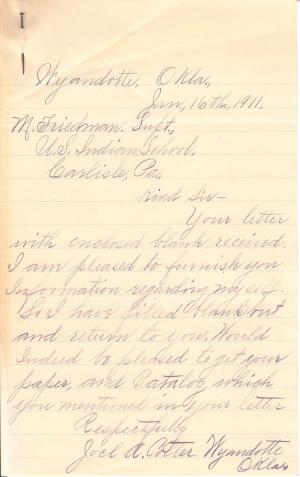 Wyandotte, Okla.,
Jan, 16th, 1911.
M. Friedman. Supt.,
U.S. Indian School.
Carlisle, Pa.
Kind Sir—
Your letter
with enclosed blank received.
I am pleased to furnish you
Information regarding my self.
So I have filled blank out
and return to you. Would
Indeed be pleased to get your
paper, and Catalog which
you mentioned in your letter
Respectfully
Joel A. Cotter Wyandotte
Okla